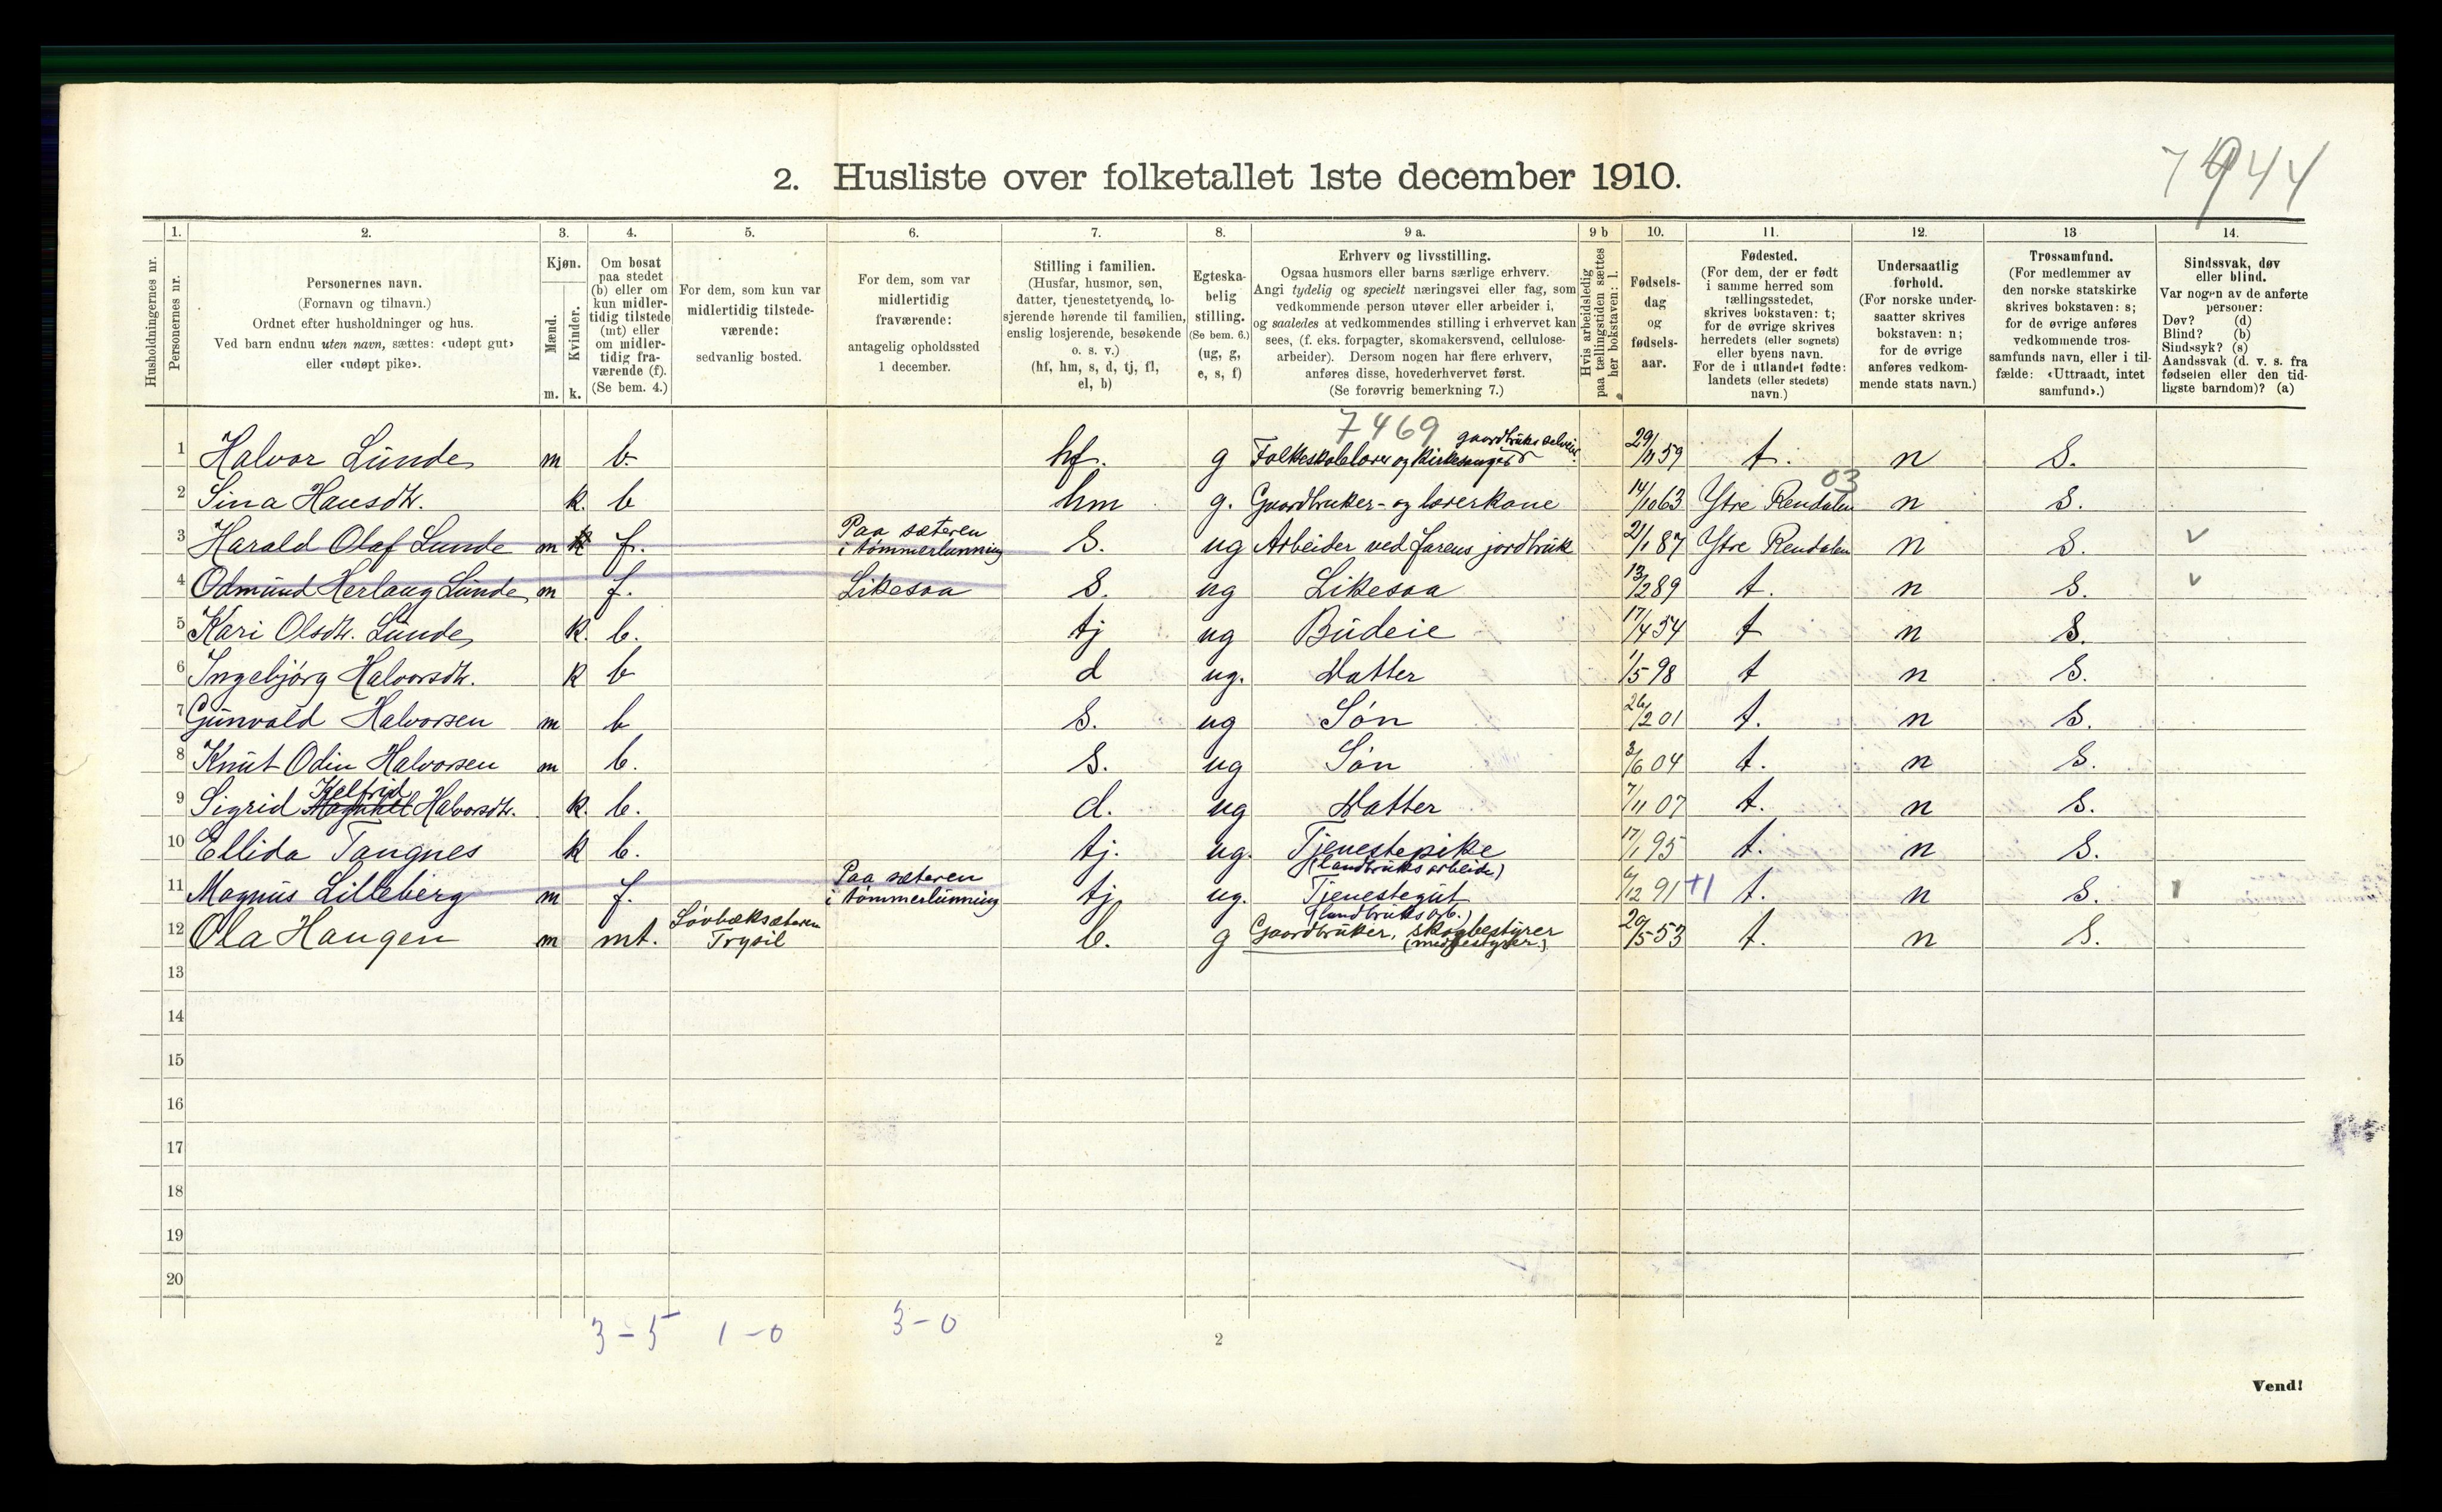 7944
2. Husliste over folketallet 1ste december 1910.
Husholdningernes nr.
1. Personernes nr.
2. Personernes navn.
(Fornavn og tilnavn.)
Ordnet efter husholdninger og hus.
Ved barn endnu uten navn, sættes: «udøpt gut»
eller «udøpt pike».
3. Kjøn.
Mænd. m.
Kvinder. k.
4. Om bosat
paa stedet
(b) eller om
kun midler-
tidig tilstede
(mt) eller
om midler-
tidig fra-
værende (f).
(Se bem. 4.)
5. For dem, som kun var
midlertidig tilstede-
værende:
sedvanlig bosted.
6. For dem, som var
midlertidig
fraværende:
antagelig opholdssted
1 december.
7. Stilling i familien.
(Husfar, husmor, søn,
datter, tjenestetyende, lo-
sjerende hørende til familien,
enslig losjerende, besøkende
o. s. v.)
(hf, hm, s, d, tj, fl,
el, b)
8. Egteska-
belig
stilling.
(Se bem. 6.)
(ug, g,
e, s, f)
9 a. Erhverv og livsstilling.
Ogsaa husmors eller barns særlige erhverv.
Angi tydelig og specielt næringsvei eller fag, som
vedkommende person utøver eller arbeider i,
og saaledes at vedkommendes stilling i erhvervet kan
sees, (f. eks. forpagter, skomakersvend, cellulose-
arbeider). Dersom nogen har flere erhverv,
anføres disse, hovederhvervet først.
(Se forøvrig bemerkning 7.)
9 b Hvis arbeidsledig
paa tællingstiden sættes
her bokstaven: l.
10. Fødsels-
dag
og
fødsels-
aar.
11. Fødested.
(For dem, der er født
i samme herred som
tællingsstedet,
skrives bokstaven: t;
for de øvrige skrives
herredets (eller sognets)
eller byens navn.
For de i utlandet fødte:
landets (eller stedets)
navn.)
12. Undersaatlig
forhold.
(For norske under-
saatter skrives
bokstaven: n;
for de øvrige
anføres vedkom-
mende stats navn.)
13 Trossamfund.
(For medlemmer av
den norske statskirke
skrives bokstaven: s;
for de øvrige anføres
vedkommende tros-
samfunds navn, eller i til-
fælde: «Uttraadt, intet
samfund».)
14. Sindssvak, døv
eller blind.
Var nogen av de anførte
personer:
Døv? (d)
Blind? (b)
Sindssyk? (s)
Aandssvak (d. v. s. fra
fødselen eller den tid-
ligste barndom)? (a)
7469
1 Halvor Lunde m b. hf. g Folkeskolelærer og Kirkesanger gaardbruker selveier 29/11 59 t. n S.
03
2 Sina Hansdtr. k. b hm g. Gaardbruker- og lærerkone 14/10 63 Ytre Rendalen n S.
3 Harald Olaf Lunde m f. Paa sæteren i tømmerlunning S. ug Arbeider ved farens jordbruk 21/1 87 Ytre Rendalen n S. v
4 Odmund Herlaug Lunde m f. Likesaa S. ug Likesaa 13/2 89 t. n S. v
5 Kari Olsdtr. Lunde k. b. tj ug Budeie 17/4 54 t n S.
6 Ingebjörg Halvorsdtr. k b d ug. Datter 1/5 98 t n S.
7 Gunvald Halvorsen m b S. ug Søn 26/2 01 t. n S.
8 Knut Odin Halvorsen m b. S. ug Søn 3/6 04 t. n S.
9 Sigrid Kelfrid Halvorsdtr. k. b. d. ug Datter 7/11 07 t. n S.
10 Ellida Tangnes k b. tj. ug. Tjenestepike (landbruksarbeide) 17/1 95 t. n S.
11 Magnus Lilleberg m f. Paa sæteren i tømmerlunning tj. ug. Tjenestegut (landbruksarb.) 6/12 91 +1 t. n S.
12 Ola Haugen m mt. Lövbæksæteren Trysil b. g Gaardbruker, skogbestyrer (medbestyrer) 20/5 53 t. n S.
13
14
15
16
17
18
19
20
3-5 1-0 3-0
2
Vend!